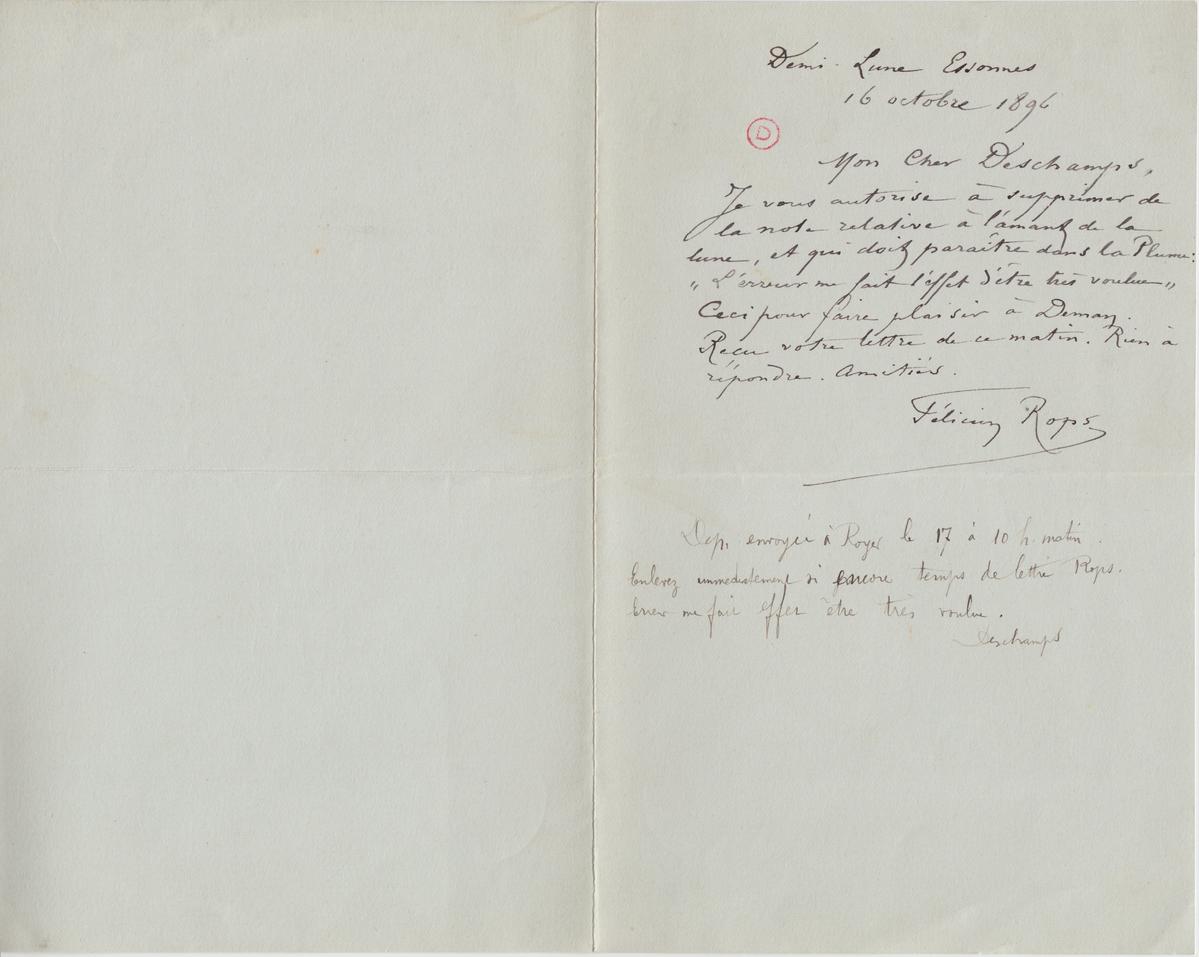 Demi-Lune Essonnes
16 octobre 1896
D
Mon Cher Deschamps,
Je vous autorise à supprimer de
la note relative à l'amant de la
lune, et qui doit paraître dans la Plume:
„ L'erreur me fait l'effet d'être très voulue „
Ceci pour faire plaisir à Deman.
Reçu votre lettre de ce matin. Rien à
répondre. Amitiés.
Félicien Rops
Dep. envoyée à Royer le 17 à 10 h. matin.
Enlevez immediatement si encore temps de lettre Rops.
Erreur me fait effet être très voulue.
Deschamps